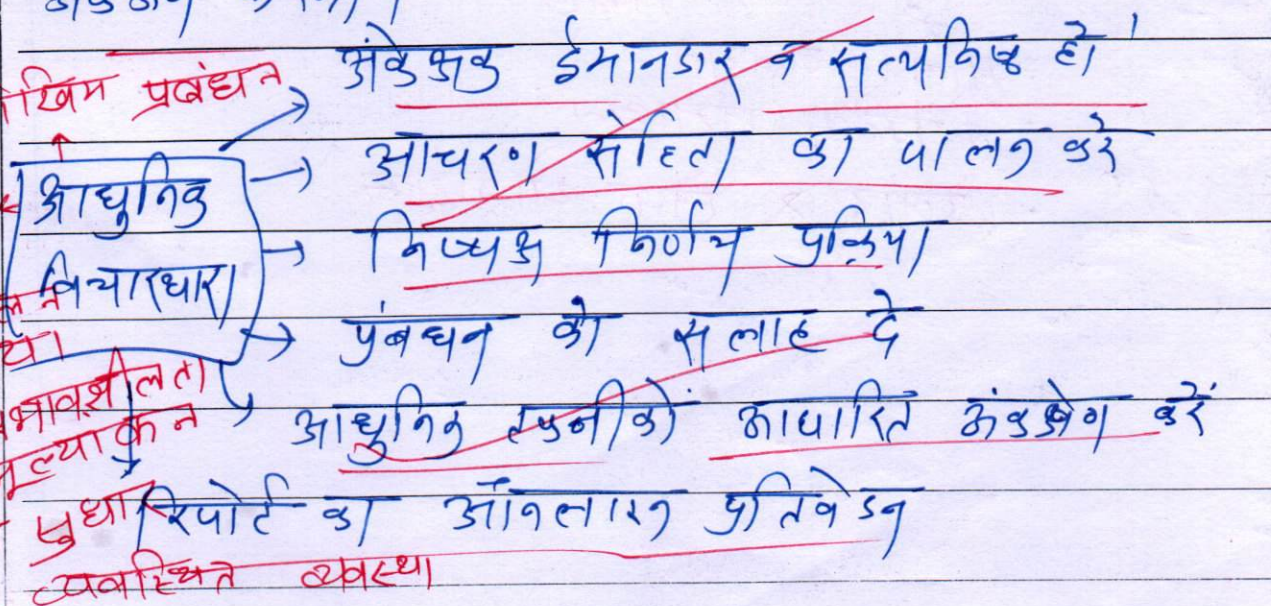 खिम प्रबंधन
अंकेक्षक ईमानदार व सत्यनिष्ठ हो
आधुनिक
विचारधारा
→ आचरण संहिता का पालन करे
→ निष्पक्ष निर्णय प्रक्रिया
→ प्रंबधन को सलाह दे
आधुनिक तकनीकों आधारित अंकक्षेण करें
रिपोर्ट का ऑनलाइन प्रतिवेदन
भावशीलता
मूल्याकन
सुधार
व्यवस्थित व्यवस्था